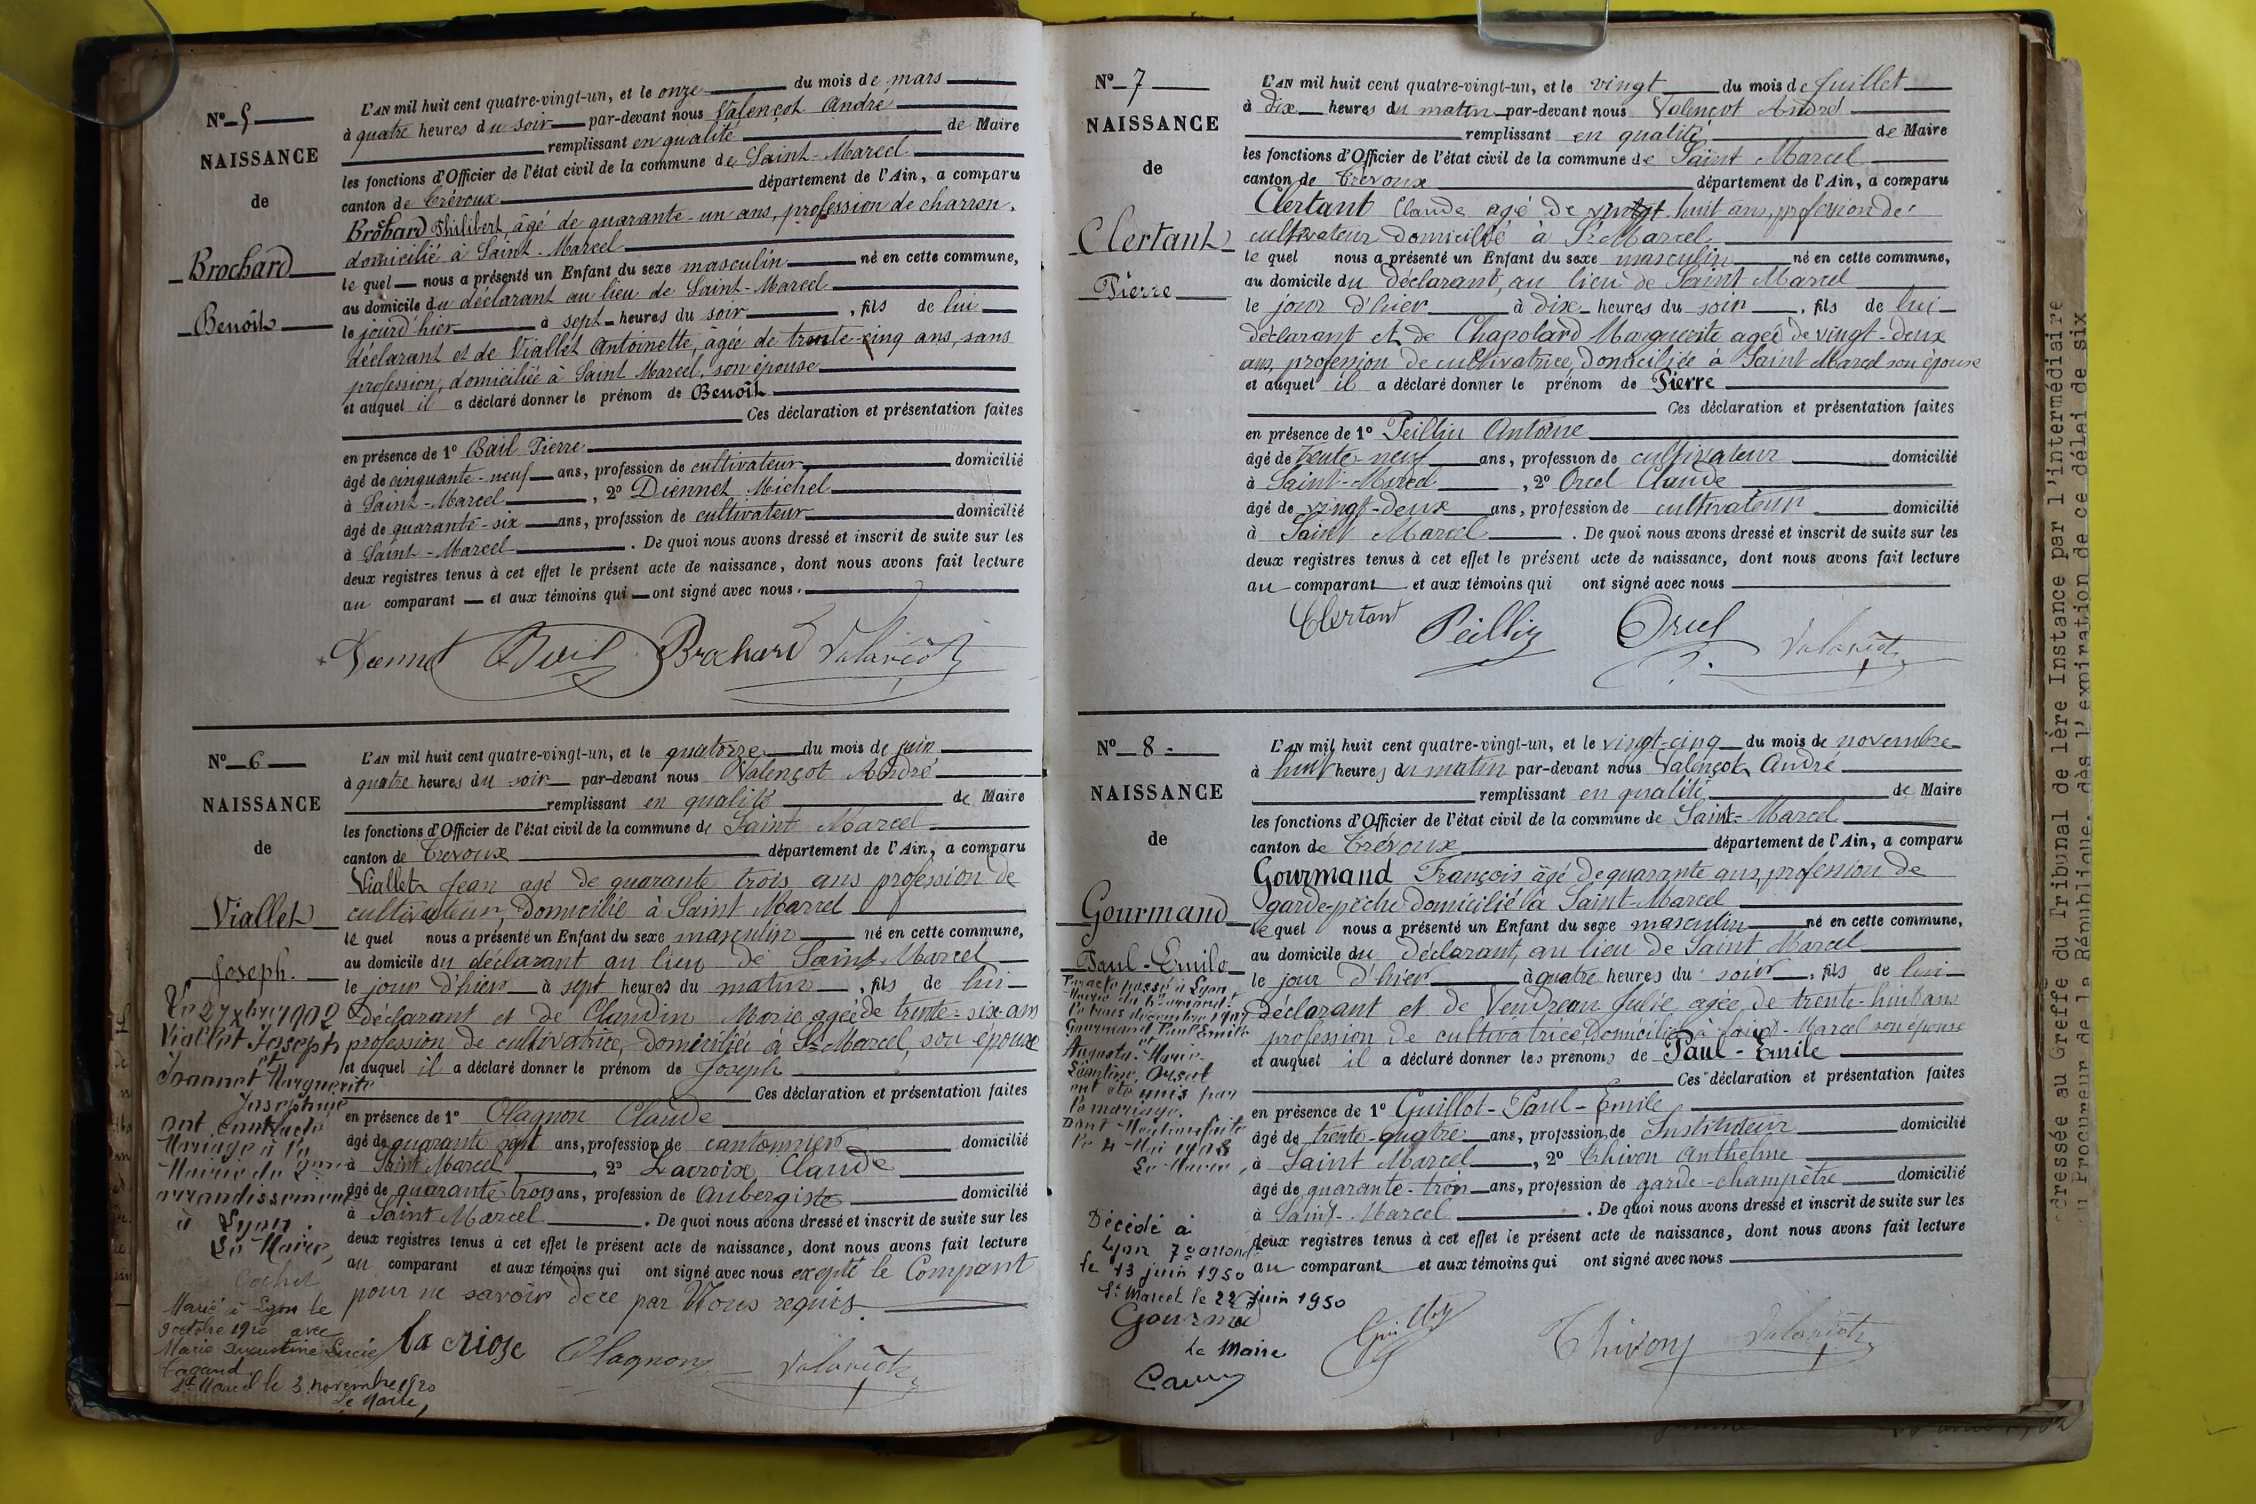 N° 5
NAISSANCE
de
Brochard
Benoît
L'AN mil huit cent quatre-vingt-un, et le onze du mois de mars
à quatre heures du soir par-devant nous Valençot André
remplissant en qualité de Maire
les fonctions d'Officier de l'état civil de la commune de Saint-Marcel
canton de Trévoux département de l'Ain, a comparu
Brochard Philibert, âgé de quarante-un ans, profession de charron,
domicilié à Saint-Marcel
le quel nous a présenté un Enfant du sexe masculin né en cette commune,
au domicile du déclarant au lieu de Saint-Marcel
le jour d'hier à sept heures du soir, fils de lui
déclarant et de Viallet Antoinette, âgée de trente-cinq ans, sans
profession, domiciliée à Saint Marcel, son épouse
et auquel il a déclaré donner le prénom de Benoît
Ces déclaration et présentation faites
en présence de 1° Bail Pierre
âgé de cinquante-neuf ans, profession de cultivateur domicilié
à Saint-Marcel, 2° Diennet Michel
âgé de quarante-six ans, profession de cultivateur domicilié
à Saint-Marcel. De quoi nous avons dressé et inscrit de suite sur les
deux registres tenus à cet effet le présent acte de naissance, dont nous avons fait lecture
au comparant et aux témoins qui ont signé avec nous.
Diennet Bail Brochard Valençot
N° 6
NAISSANCE
de
Viallet
Joseph.
L'AN mil huit cent quatre-vingt-un, et le quatorze du mois de juin
à quatre heures du soir par-devant nous Valençot André
remplissant en qualité de Maire
les fonctions d'Officier de l'état civil de la commune de Saint Marcel
canton de Trevoux département de l'Ain, a comparu
Viallet Jean agé de quarante trois ans profession de
cultivateur, domicilié à Saint Marcel
le quel nous a présenté un Enfant du sexe masculin né en cette commune,
au domicile du déclarant au lieu de Saint Marcel
le jour d'hier à sept heures du matin, fils de lui
déclarant et de Claudin Marie agée de trente-six ans
profession de cultivatrice, domiciliée à St Marcel, son épouse
et duquel il a déclaré donner le prénom de Joseph
Ces déclaration et présentation faites
en présence de 1° Olagnon Claude
âgé de quarante sept ans, profession de cantonnier domicilié
à Saint Marcel, 2° Lacroix Claude
âgé de quarante-trois ans, profession de Aubergiste domicilié
à Saint Marcel. De quoi nous avons dressé et inscrit de suite sur les
deux registres tenus à cet effet le présent acte de naissance, dont nous avons fait lecture
au comparant et aux témoins qui ont signé avec nous excpté le Compant
pour ne savoir de ce par Nous requis
Olagnon Valençot
Le 27 xbre 1902
Viallet Joseph
et
Joannet Marguerite
Josephine
ont contracté
Mariage à la
Mairie du
arrondissement
à Lyon.
Le Maire,
Marié à Lyon le
9 octobre 1920 avec
Marie Augustine Lucie
St Marcel le 3 novembre 1920
Le Maire,
N° 7
NAISSANCE
de
Clertant
Pierre
L'AN mil huit cent quatre-vingt-un, et le vingt du mois de Juillet
à dix heures du matin par-devant nous Valençot André
remplissant en qualité de Maire
les fonctions d'Officier de l'état civil de la commune de Saint Marcel
canton de Trévoux département de l'Ain, a comparu
Clertant Claude agé de vingt-huit ans, profession de
cultivateur domicilié à St Marcel
le quel nous a présenté un Enfant du sexe masculin né en cette commune,
au domicile du déclarant, au lieu de Saint Marcel
le jour d'hier à dix heures du soir, fils de lui
déclarant et de Chapolard Marguerite agée de vingt-deux
ans, profession de cultivatrice, Domiciliée à Saint Marcel son épouse
et auquel il a déclaré donner le prénom de Pierre
Ces déclaration et présentation faites
en présence de 1° Peillin Antoine
âgé de Trente-neuf ans, profession de cultivateur domicilié
à Saint-Marcel, 2° Orcel Claude
âgé de vingt-deux ans, profession de cultivateur domicilié
à Saint Marcel. De quoi nous avons dressé et inscrit de suite sur les
deux registres tenus à cet effet le présent acte de naissance, dont nous avons fait lecture
au comparant et aux témoins qui ont signé avec nous
Clertant Peillin Orcel Valençot
N° 8
NAISSANCE
de
Gourmand
Paul-Emile
L'AN mil huit cent quatre-vingt-un, et le vingt-cinq du mois de novembre
à huit heures du matin par-devant nous Valençot André
remplissant en qualité de Maire
les fonctions d'Officier de l'état civil de la commune de Saint-Marcel
canton de Trévoux département de l'Ain, a comparu
Gourmand François âgé de quarante ans, profession de
garde-pêche domicilié à Saint-Marcel
le quel nous a présenté un Enfant du sexe masculin né en cette commune,
au domicile du déclarant, au lieu de Saint Marcel
le jour d'hier à quatre heures du soir, fils de lui
déclarant et de Vendrean Julie agée de trente-huit ans
profession de cultivatrice domiciliée à Saint-Marcel son épouse
et auquel il a déclaré donner les prenoms de Paul-Emile
Ces déclaration et présentation faites
en présence de 1° Guillot-Paul-Emile
âgé de trente-quatre ans, profession de Instituteur domicilié
à Saint Marcel, 2° Thivon Anthelme
âgé de quarante-trois ans, profession de garde-champêtre domicilié
à Saint-Marcel. De quoi nous avons dressé et inscrit de suite sur les
deux registres tenus à cet effet le présent acte de naissance, dont nous avons fait lecture
au comparant et aux témoins qui ont signé avec nous
Thivon Valençot
Par acte passé à Lyon,
décembre 1907
Gourmand Paul Emile
et
Augusta-Marie-
ont été unis par
le mariage.
Dont Mention faite
le 4 Mai 1908
Le Maire,
Décédé à
Lyon 7e arrond
le 13 juin 1950
St Marcel le 22 Juin 1950
Gourmand
Le Maire
adressée au Greffe du Tribunal de 1ère Instance par l'intermédiaire
du Procureur de la République, dès l'expiration de ce délai de six